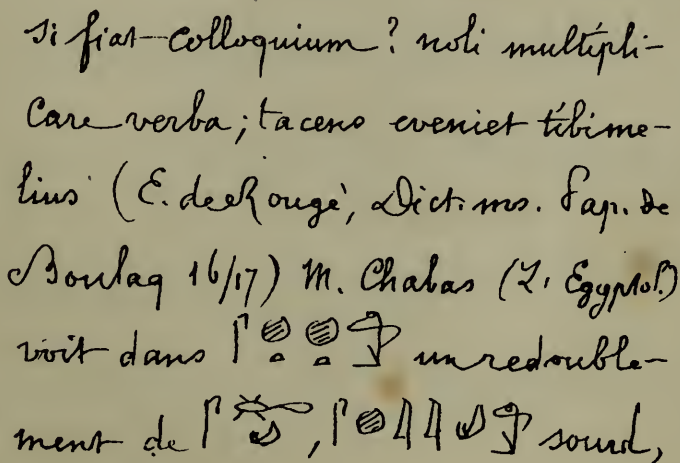 si fiat colloquium? noli multipli-
care verba; tacens eveniet tibi me-
lius (E. de Rougé, Dict. ms. Pap. de
Boulaq 16/17) M. Chabas (L. Egyptol.)
voit dans un redouble-
ment de , sourd,